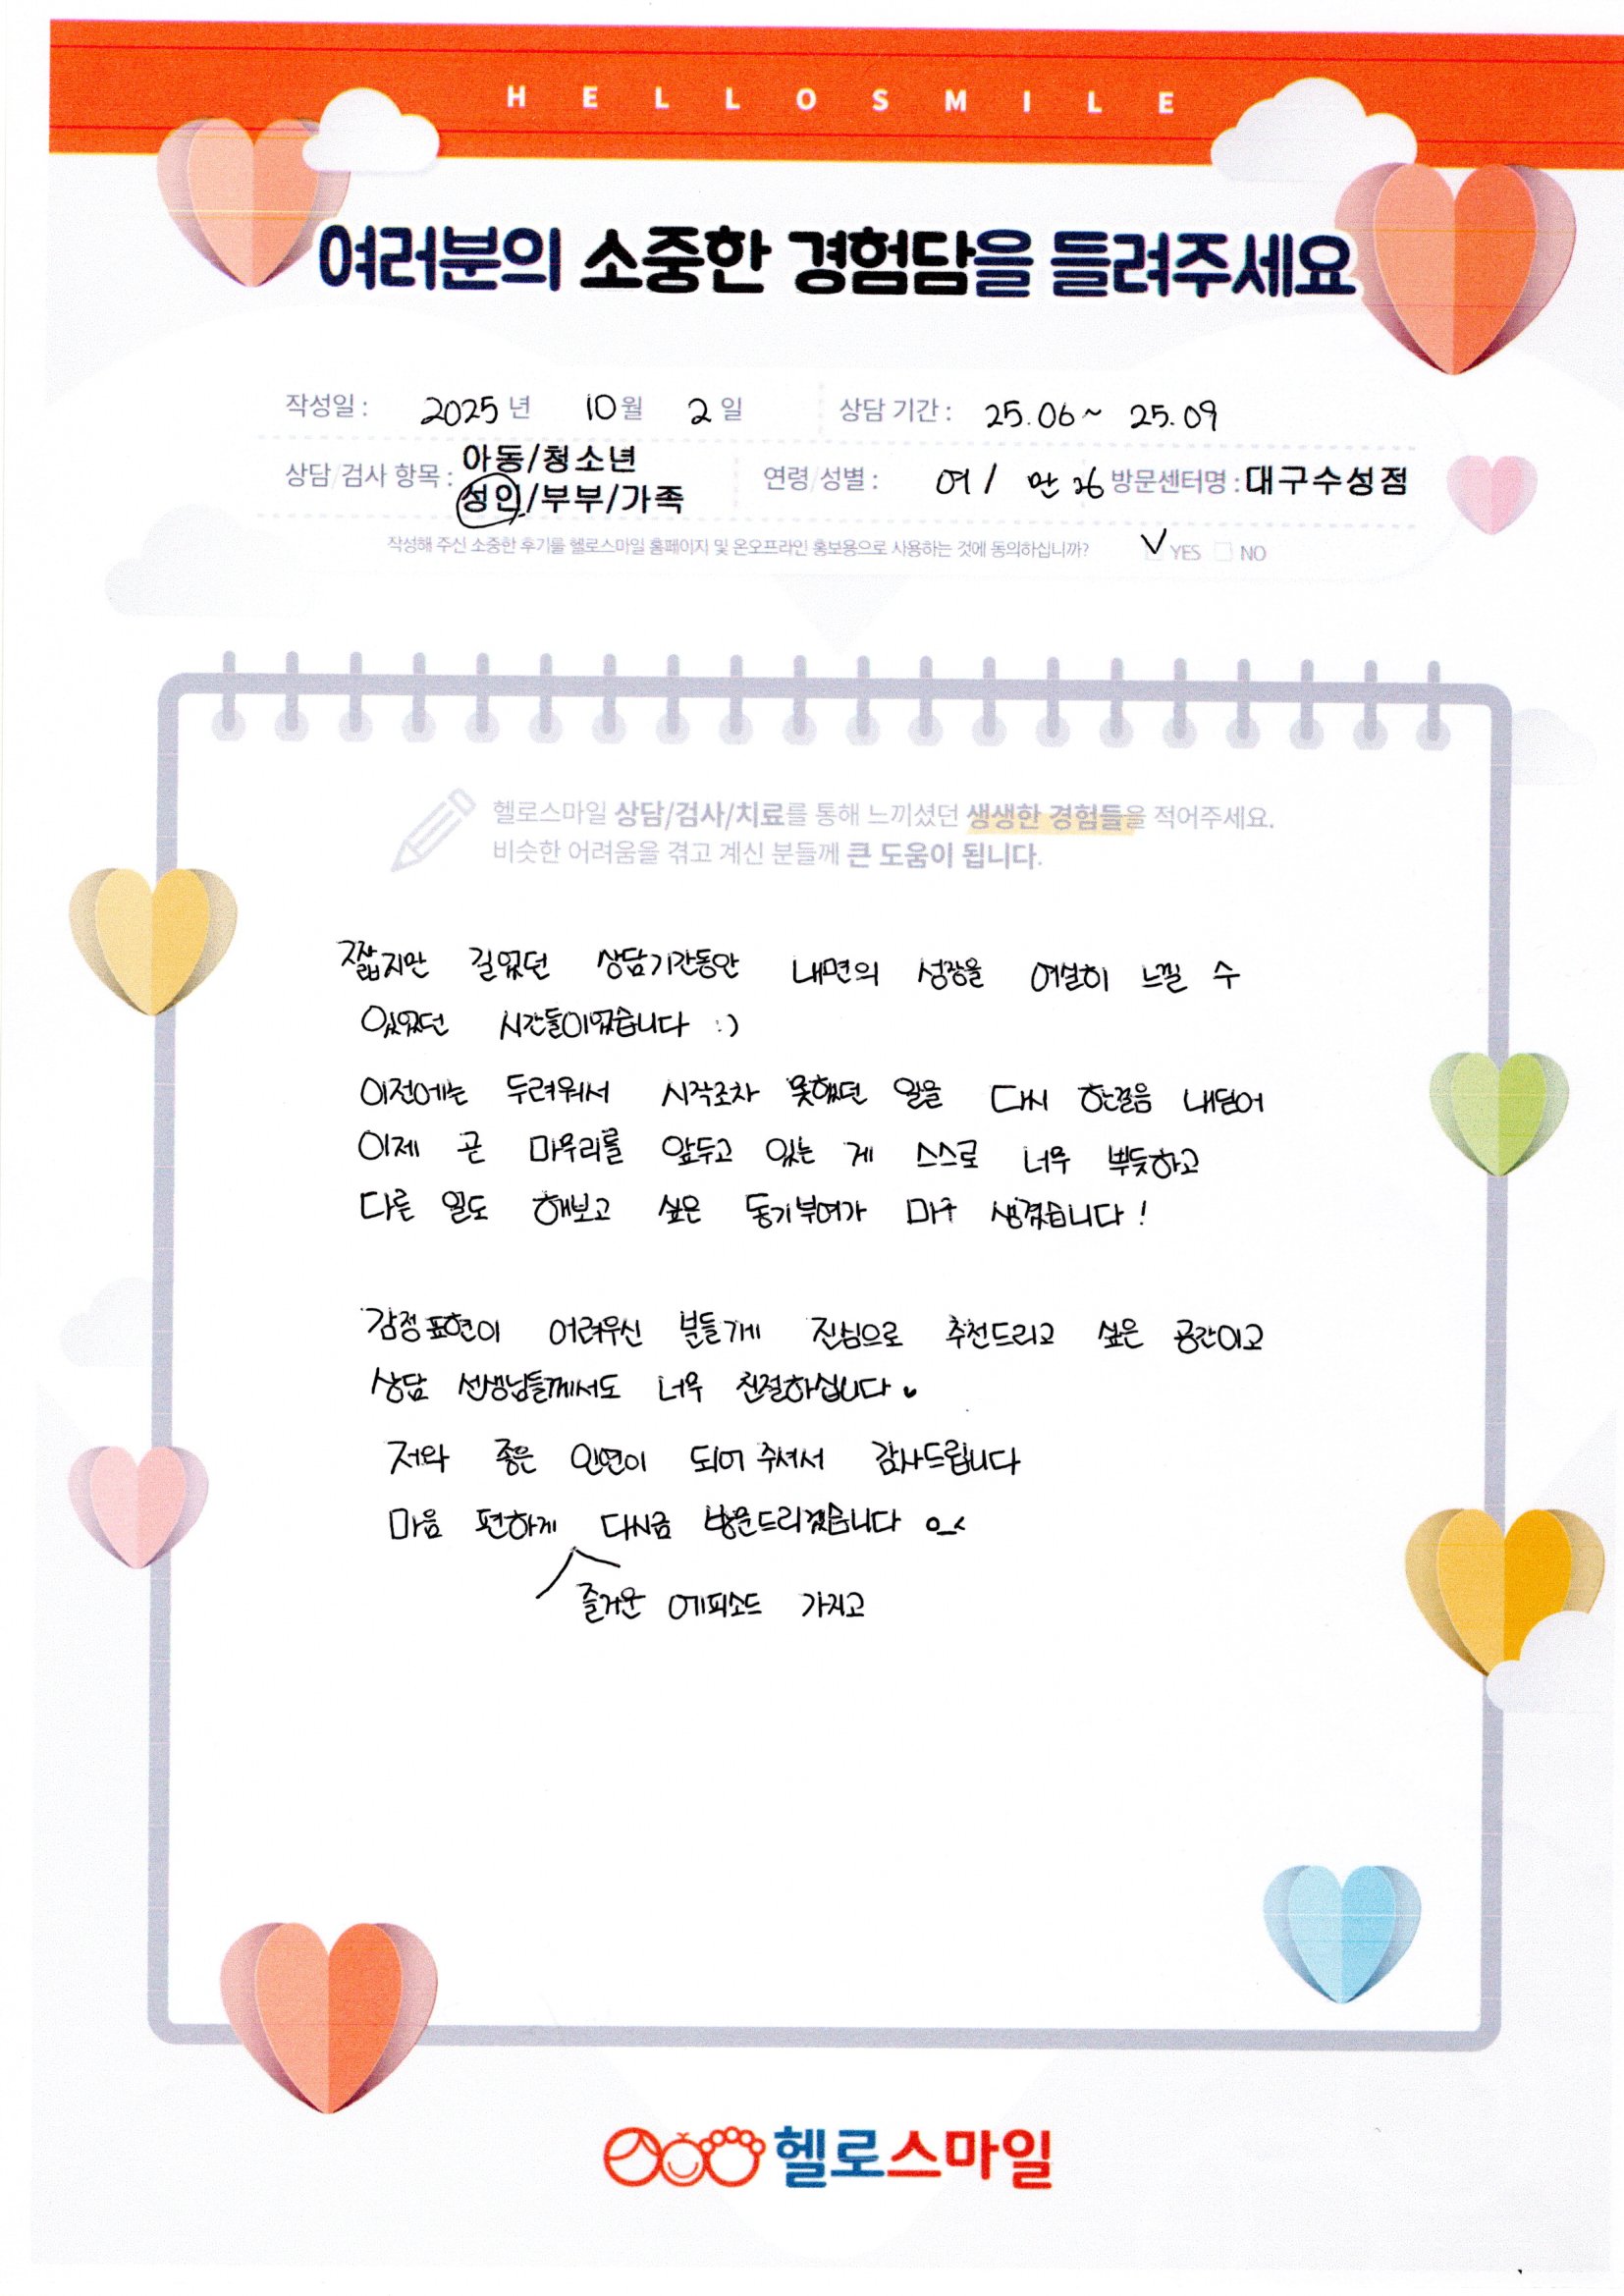 HELLOSMILE
여러분의 소중한 경험담을 들려주세요
작성일 : 2025 년 10 월 2 일 상담 기간 : 25.06 ~ 25.09
상담/검사 항목 : 아동/청소년 성인/부부/가족 연령/성별 : 여 / 만 26 방문센터명 : 대구수성점
작성해 주신 소중한 후기를 헬로스마일 홈페이지 및 온오프라인 홍보용으로 사용하는 것에 동의하십니까? ✓ YES □ NO
헬로스마일 상담/검사/치료를 통해 느끼셨던 생생한 경험들을 적어주세요.
비슷한 어려움을 겪고 계신 분들께 큰 도움이 됩니다.
짧지만 길었던 상담기간동안 내면의 성장을 여실히 느낄 수
있었던 시간들이었습니다 :)
이전에는 두려워서 시작조차 못했던 일을 다시 한걸음 내딛어
이제 곧 마무리를 앞두고 있는 게 스스로 너무 뿌듯하고
다른 일도 해보고 싶은 동기부여가 마구 생겼습니다!
감정표현이 어려우신 분들께 진심으로 추천드리고 싶은 공간이고
상담 선생님들께서도 너무 친절하십니다♥
저와 좋은 인연이 되어 주셔서 감사드립니다
마음 편하게 다시금 방문드리겠습니다 o_<
즐거운 에피소드 가지고
헬로스마일